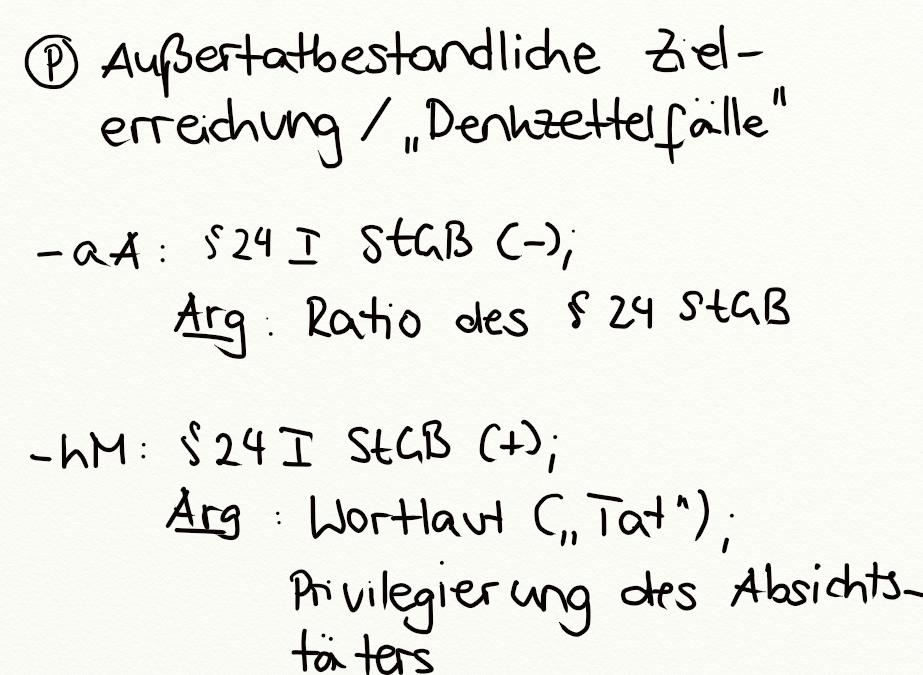 Ⓟ Außertatbestandliche Ziel-
erreichung / „Denkzettelfälle"
- aA: § 24 I StGB (-);
Arg: Ratio des § 24 StGB
- hM: § 24 I StGB (+);
Arg: Wortlaut („Tat");
Privilegierung des Absichts-
täters